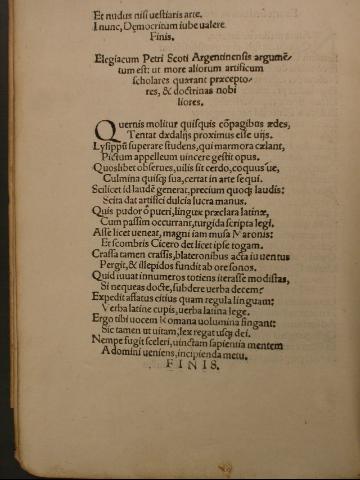 Et nudus nisi uestiaris arte.
I nunc, Democritum iube ualere.
Finis.
Elegiacum Petri Scoti Argentinensis argumē-
tum est: ut more aliorum artificum
scholares quærant præcepto-
res, & doctrinas nobi
liores.
Quernis molitur quisquis cōpagibus ædes,
Tentat dædalijs proximus esse uijs.
Lysippū superare studens, qui marmora cælant,
Pictum appelleum uincere gestit opus.
Quoslibet obserues, uilis sit cerdo, coquus ue,
Culmina quisq; sua, certat in arte sequi.
Scilicet id laudē generat, precium quoq; laudis:
Scita dat artifici dulcia lucra manus.
Quis pudor ô pueri, linguæ præclara latinæ,
Cum passim occurrant, turgida scripta legi.
Asse licet ueneat, magni iam musa Maronis:
Et scombris Cicero det licet ipse togam.
Crassa tamen crassis, blateronibus acta iuuentus
Pergit, & illepidos fundit ab ore sonos.
Quid iuuat innumeros totiens iterasse modistas,
Si nequeas docte, subdere uerba decem?
Expedit affatus citius quam regula linguam:
Verba latine cupis, uerba latina lege.
Ergo tibi uocem Romana uolumina fingant:
Sic tamen ut uitam, lex regat usq; dei.
Nempe fugit sceleri, uinctam sapientia mentem
A domini ueniens, incipienda metu.
FINIS.